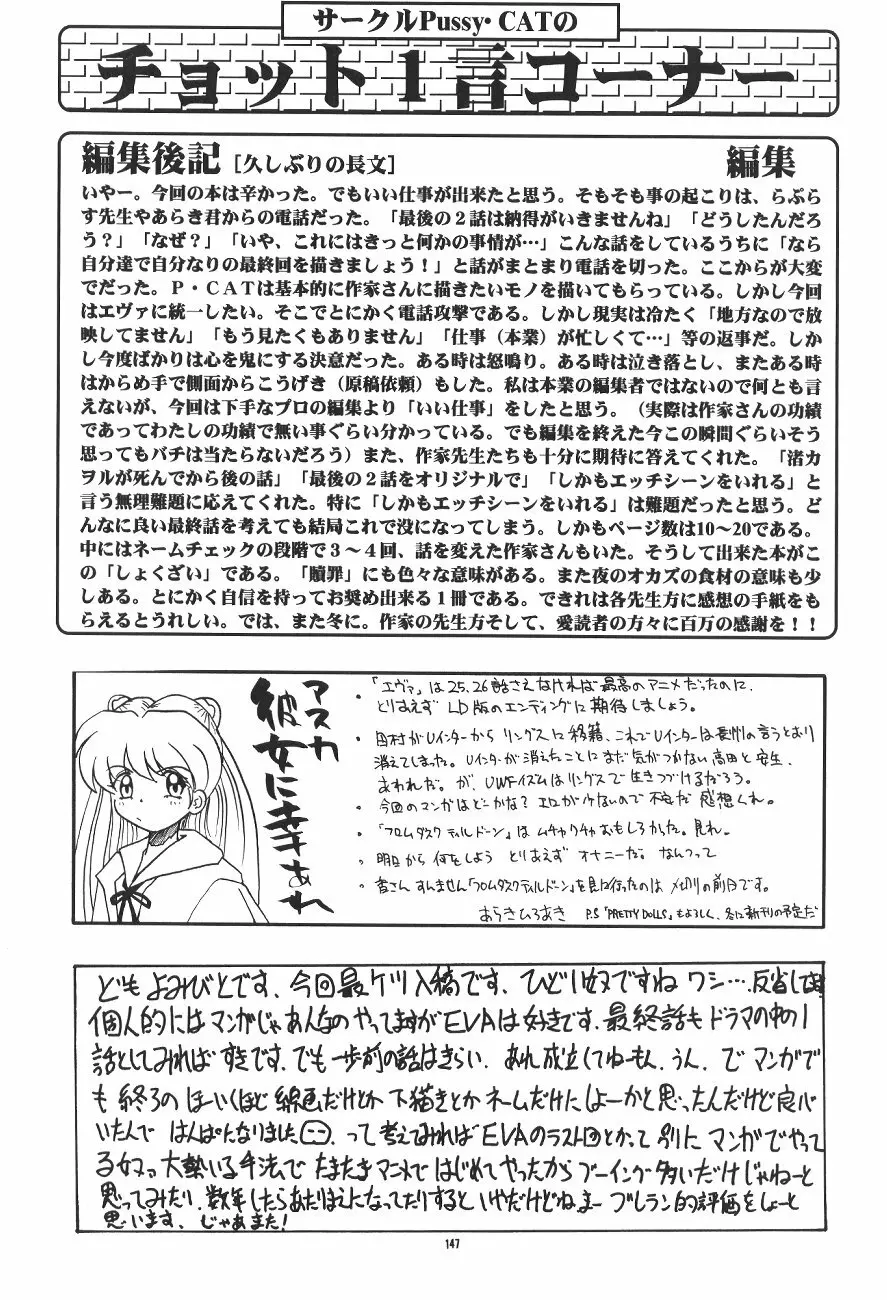 サークルPussy・CATの
チョット１言コーナー
編集後記［久しぶりの長文］ 編集
いやー。今回の本は辛かった。でもいい仕事が出来たと思う。そもそも事の起こりは、らぷら
す先生やあらき君からの電話だった。「最後の２話は納得がいきませんね」「どうしたんだろ
う？」「なぜ？」「いや、これにはきっと何かの事情が…」こんな話をしているうちに「なら
自分達で自分なりの最終回を描きましょう！」と話がまとまり電話を切った。ここからが大変
でだった。Ｐ・ＣＡＴは基本的に作家さんに描きたいモノを描いてもらっている。しかし今回
はエヴァに統一したい。そこでとにかく電話攻撃である。しかし現実は冷たく「地方なので放
映してません」「もう見たくもありません」「仕事（本業）が忙しくて…」等の返事だ。しか
し今度ばかりは心を鬼にする決意だった。ある時は怒鳴り。ある時は泣き落とし、またある時
はからめ手で側面からこうげき（原稿依頼）もした。私は本業の編集者ではないので何とも言
えないが、今回は下手なプロの編集より「いい仕事」をしたと思う。（実際は作家さんの功績
であってわたしの功績で無い事ぐらい分かっている。でも編集を終えた今この瞬間ぐらいそう
思ってもバチは当たらないだろう）また、作家先生たちも十分に期待に答えてくれた。「渚カ
ヲルが死んでから後の話」「最後の２話をオリジナルで」「しかもエッチシーンをいれる」と
言う無理難題に応えてくれた。特に「しかもエッチシーンをいれる」は難題だったと思う。ど
んなに良い最終話を考えても結局これで没になってしまう。しかもページ数は10～20である。
中にはネームチェックの段階で３～４回、話を変えた作家さんもいた。そうして出来た本がこ
の「しょくざい」である。「贖罪」にも色々な意味がある。また夜のオカズの食材の意味も少
しある。とにかく自信を持ってお奨め出来る１冊である。できれは各先生方に感想の手紙をも
らえるとうれしい。では、また冬に。作家の先生方そして、愛読者の方々に百万の感謝を！！
アスカ
彼女に幸あれ
・「エヴァ」は25、26話さえなければ最高のアニメだったのに、
とりあえず LD版のエンディングに期待しましょう。
・田村がUインターからリングスに移籍、これでUインターは長州の言うとおり
消えてしました。Uインターが消えたことにまだ気がつかない高田と安生、
あわれだ。が、UWFイズムはリングスで生きつづけるだろう。
・今回のマンガはどーかな？エロが少ないので不安だ 感想くれ。
・「フロムダスクティルドーン」はムチャクチャおもしろかった。見れ。
・明日から何をしよう とりあえず オナニーだ。なんつって
・皆さんすんません「フロムダスクティルドーン」を見に行ったのは〆切りの前日です。
あらきひろあき P.S「PRETTY DOLLS」もよろしく、冬に新刊の予定だ
どもよみびとです、今回最ケツ入稿です、ひどい奴ですね ワシ…反省してます
個人的にはマンガじゃあんなのやってますがEVAは好きです、最終話もドラマの中の1
話としてみればすきです、でも一歩前の話はきらい、あれ成立してねーもん、うん、で マンガで
も 終ろの ほーいくほど 線画だけとか 下描きとか ネームだけにしよーかと思ったんだけど良心
いたんで はんぱになりました、って考えてみればEVAのラスト回とかって別に マンガでやって
る奴って大勢いる手法で たまたまアニメではじめてやったからブーイング多いだけじゃねーと
思ってみたり、数年したらあたりまえになってたりすると いやだけどねまー ブレラン的評価をしよーと
思います、じゃあまた！
147